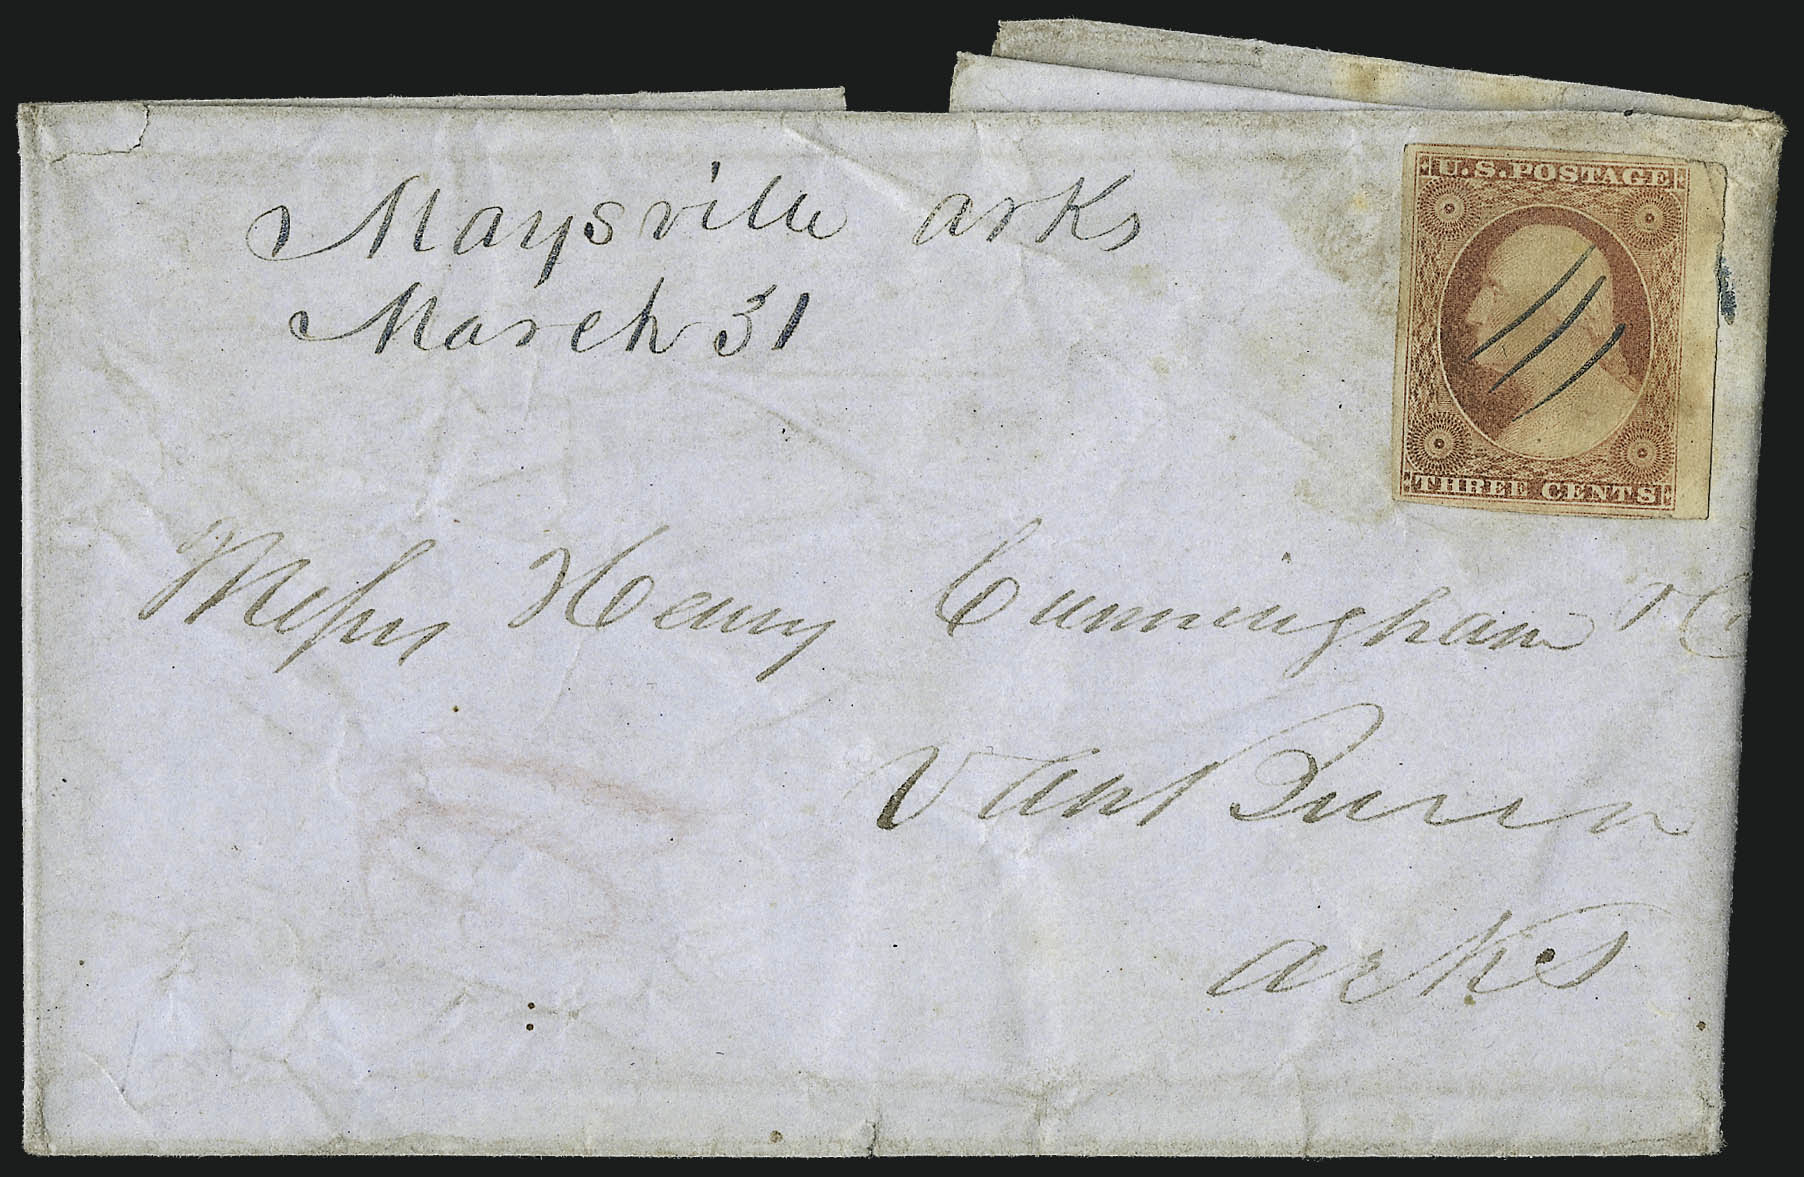 Maysville arks
March 31
U.S. POSTAGE
THREE CENTS
Messrs Henry Cunningham & Co
Van Buren
arks